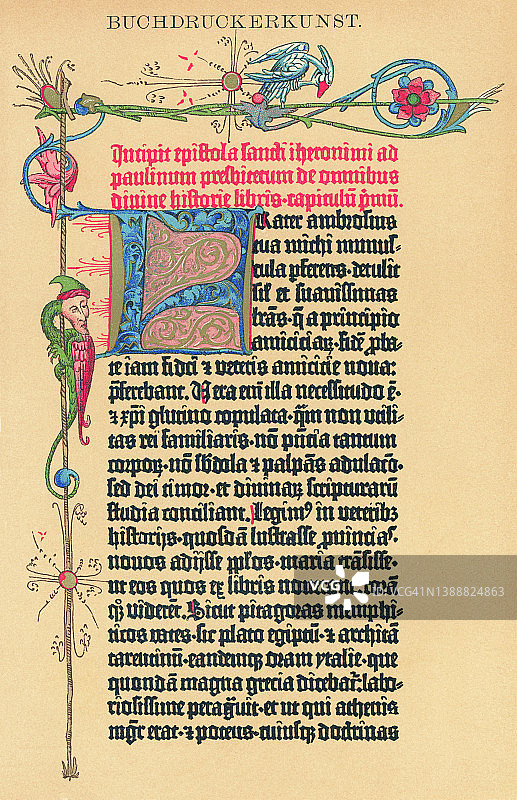 BUCHDRUCKERKUNST.
Incipit epistola sancti iheronimi ad
paulinum presbiterum de omnibus
divine historie libris· capitulū p̄mū.
FRater ambrosius
tua michi munus-
cula p̄ferens· detulit
sil̄ et suavissimas
lr̄as· q̄ a principio
amiciciaꝝ· fidē ꝓba-
te iam fidei ⁊ veteris amicicie nova:
p̄ferebant. Uera em̄ illa necessitudo ē·
⁊ xp̄i glutino copulata· qm̄ non utili-
tas rei familiaris· nō p̄ncia tantum
corpoꝝ· nō sb̄dola ⁊ palpās adulacō·
sed dei timor· et divinaꝝ scripturarū
studia conciliant. Legim⁹ in veteribꝫ
historijs· quosdā lustrasse ꝓvincias·
novos adijsse ppl̄os· maria trāsisse·
ut eos quos ex libris
qꝫ viderēt. Sicut pitagoras memphi-
ticos vates· sic plato egiptū· ⁊ architā
tarentinū· eandemqꝫ oram ytalie· que
quondā magna grecia dicebat̄: labo-
riosissime peragͥvit· et ut qui athenis
mgr̄ erat· ⁊ potens· cuiusqꝫ doctrinas
VCG
VCG41N1388824863